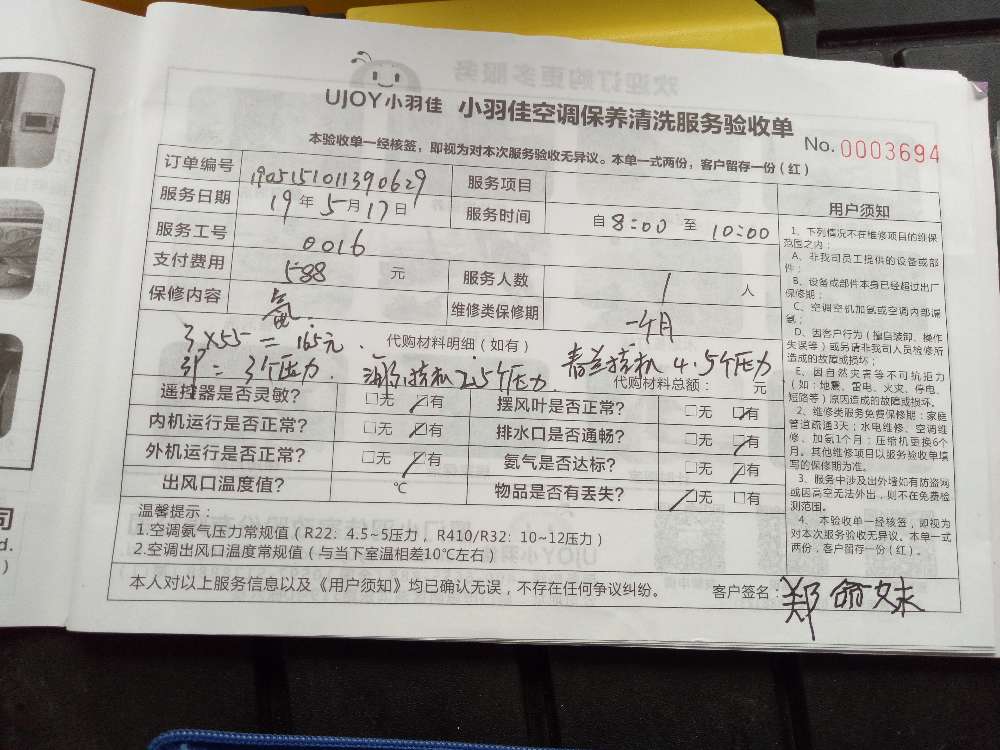 UJOY小羽佳 小羽佳空调保养清洗服务验收单
No. 0003694
本验收单一经核签，即视为对本次服务验收无异议。本单一式两份，客户留存一份（红）
订单编号 1905151011390629 服务项目
服务日期 19年5月17日 服务时间 自8:00至10:00
服务工号 0016
支付费用 588 元 服务人数 1 人
保修内容 氟 维修类保修期 一个月
3×55=165元. 代购材料明细（如有）
3个压力. 挂机2.5个压力. 春兰挂机4.5个压力
代购材料总额： 元
遥控器是否灵敏？ □无 ☑有 摆风叶是否正常？ □无 ☑有
内机运行是否正常？ □无 ☑有 排水口是否通畅？ □无 ☑有
外机运行是否正常？ □无 ☑有 氨气是否达标？ □无 ☑有
出风口温度值？ ℃ 物品是否有丢失？ ☑无 □有
温馨提示：
1.空调氨气压力常规值（R22：4.5~5压力，R410/R32：10~12压力）
2.空调出风口温度常规值（与当下室温相差10℃左右）
本人对以上服务信息以及《用户须知》均已确认无误，不存在任何争议纠纷。 客户签名：郑
用户须知
1、下列情况不在维修项目的维保
范围之内：
A、非我司员工提供的设备或部
件；
B、设备或部件本身已经超过出厂
保修期；
C、空调空机加氨或空调内部漏
氨；
D、因客户行为（擅自装卸、操作
失误等）或另请非我司人员检修所
造成的故障或损坏；
E、因自然灾害等不可抗拒力
（如：地震、雷电、火灾、停电、
短路等）原因造成的故障或损坏。
2、维修类服务免费保修期：家庭
管道疏通3天；水电维修、空调维
修、加氨1个月；压缩机更换6个
月。其他维修项目以服务验收单填
写的保修期为准。
3、服务中涉及出外墙如有防盗网
或因高空无法外出，则不在免费检
测范围。
4、本验收单一经核签，即视为
对本次服务验收无异议。本单一式
两份，客户留存一份（红）。
司
d.
)